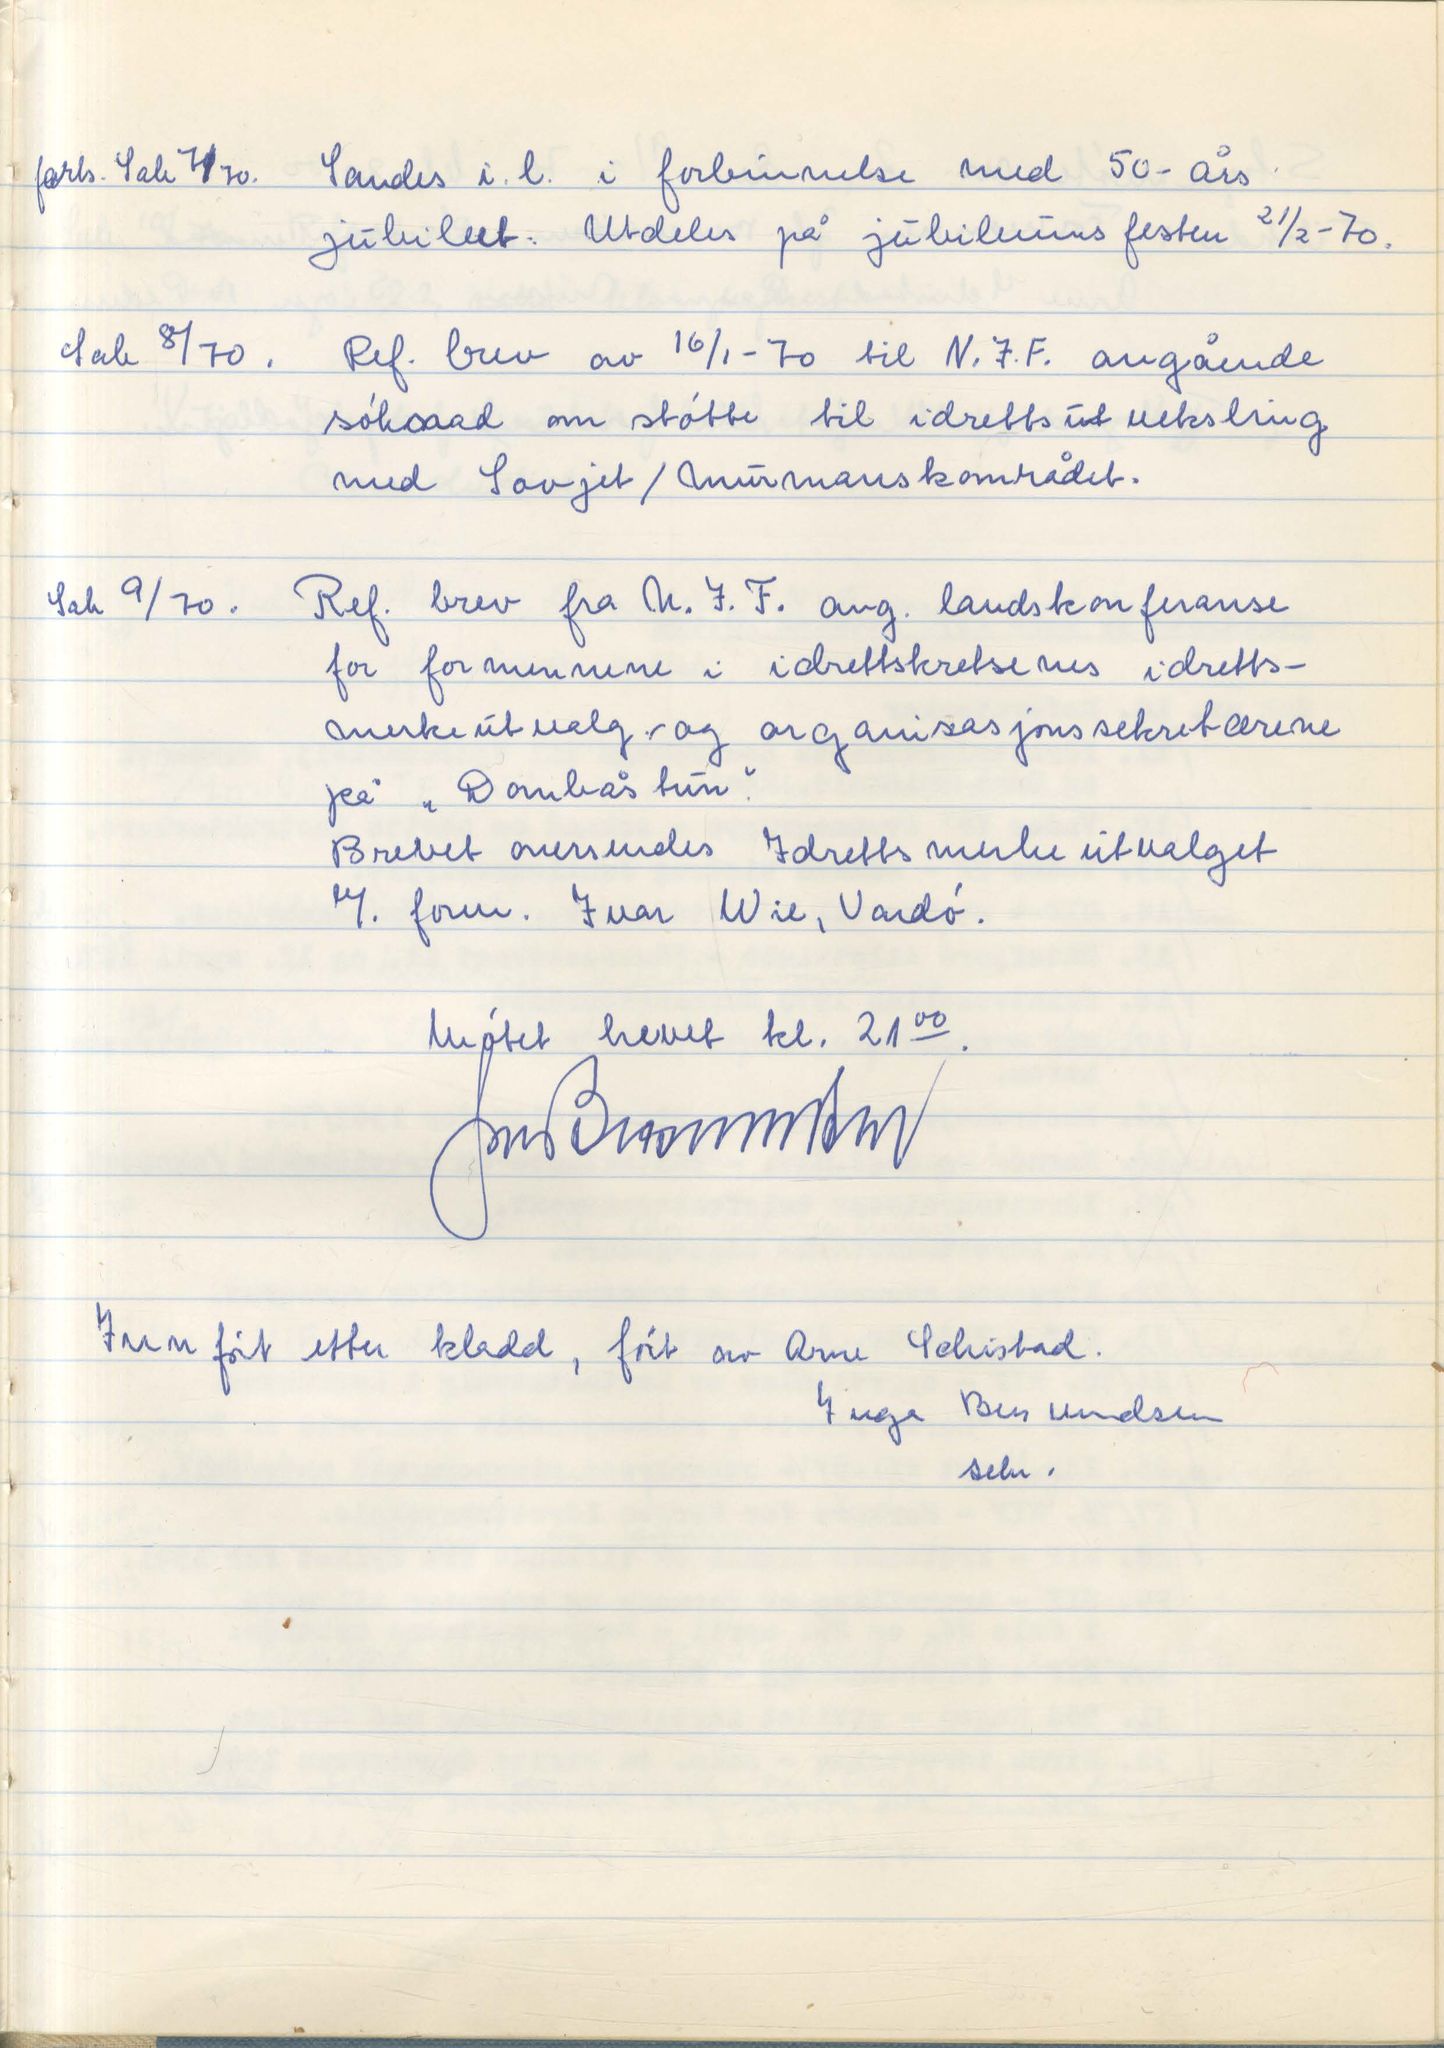 forts. Sak 7/70. Sandes i.l. i forbinnelse med 50-års
jubileet. Utdeles på jubileums festen 21/2-70.
Sak 8/70. Ref. brev av 16/1-70 til N.I.F. angående
søknad om støtte til idrettsutveksling
med Sovjet/Murmanskområdet.
Sak 9/70. Ref. brev fra N.I.F. ang. landskonferanse
for formennene i idrettskretsenes idretts-
merkeutvalg og organisasjonssekretærene
på "Dombås tun".
Brevet oversendes Idrettsmerkeutvalget
v/. form. Ivar Wie, Vardø.
Møtet hevet kl. 21 00.
Innført etter kladd, ført av Arne Schistad.
Inga
sekr.